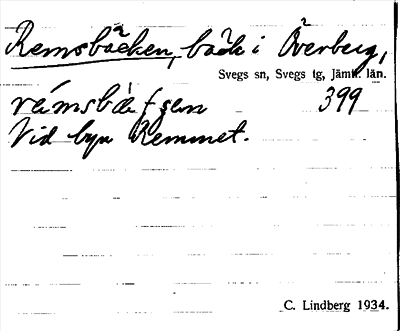 Remsbäcken, bäck i Överberg,
Svegs sn, Svegs tg, Jämtl. län.
399
Vid byn Remmet.
C. Lindberg 1934.